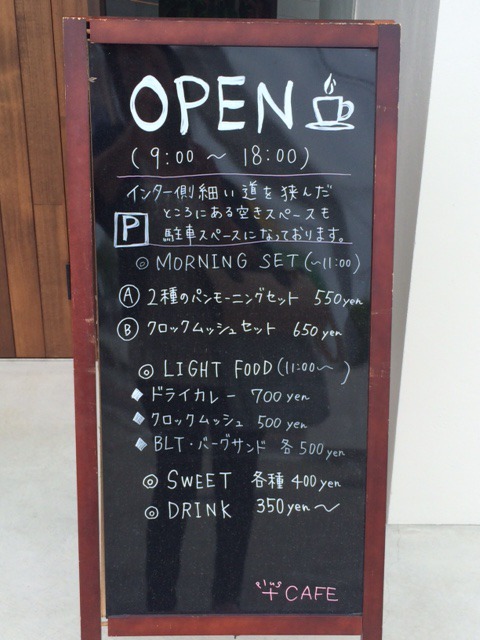 OPEN
(9:00 〜 18:00)
インター側細い道を狭んだ
ところにある空きスペースも
P 駐車スペースになっております。
◎ MORNING SET (〜11:00)
Ⓐ 2種のパンモーニングセット 550yen
Ⓑ クロックムッシュセット 650yen
◎ LIGHT FOOD (11:00〜 )
◆ ドライカレー 700 yen
◆ クロックムッシュ 500 yen
◆ BLT・バーグサンド 各500yen
◎ SWEET 各種 400yen
◎ DRINK 350yen〜
plus
+ CAFE